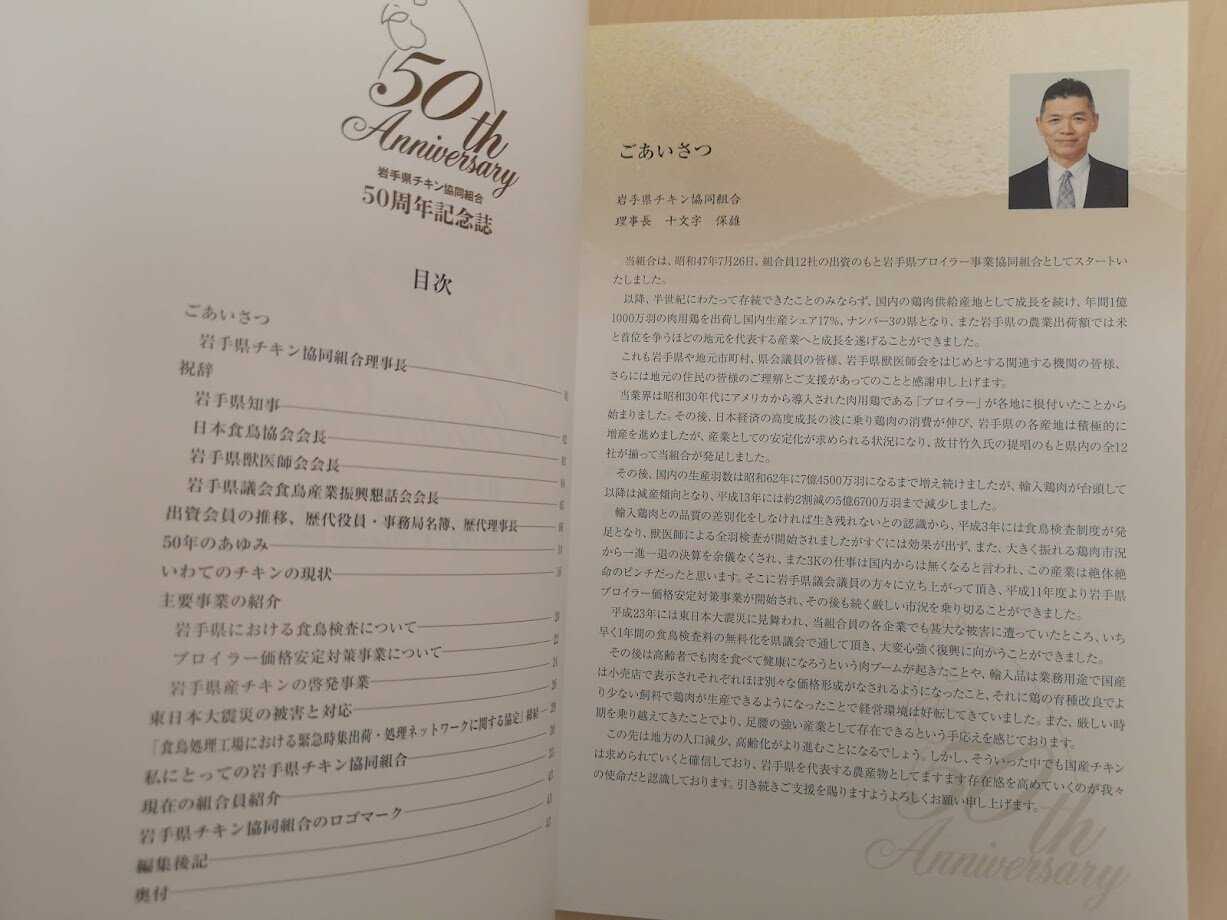 50th
Anniversary
岩手県チキン協同組合
50周年記念誌
目次
ごあいさつ
岩手県チキン協同組合理事長
祝辞
岩手県知事 02
日本食鳥協会会長 03
岩手県獣医師会会長 04
岩手県議会食鳥産業振興懇話会会長 05
出資会員の推移、歴代役員・事務局名簿、歴代理事長 06
50年のあゆみ 10
いわてのチキンの現状 16
主要事業の紹介
岩手県における食鳥検査について 20
ブロイラー価格安定対策事業について 22
岩手県産チキンの啓発事業 24
東日本大震災の被害と対応 26
「食鳥処理工場における緊急時集出荷・処理ネットワークに関する協定」締結 29
私にとっての岩手県チキン協同組合 30
現在の組合員紹介 33
岩手県チキン協同組合のロゴマーク 43
編集後記 43
奥付 45
ごあいさつ
岩手県チキン協同組合
理事長 十文字 保雄
当組合は、昭和47年7月26日、組合員12社の出資のもと岩手県ブロイラー事業協同組合としてスタートい
たしました。
以降、半世紀にわたって存続できたことのみならず、国内の鶏肉供給産地として成長を続け、年間1億
1000万羽の肉用鶏を出荷し国内生産シェア17%、ナンバー3の県となり、また岩手県の農業出荷額では米
と首位を争うほどの地元を代表する産業へと成長を遂げることができました。
これも岩手県や地元市町村、県会議員の皆様、岩手県獣医師会をはじめとする関連する機関の皆様、
さらには地元の住民の皆様のご理解とご支援があってのことと感謝申し上げます。
当業界は昭和30年代にアメリカから導入された肉用鶏である「ブロイラー」が各地に根付いたことから
始まりました。その後、日本経済の高度成長の波に乗り鶏肉の消費が伸び、岩手県の各産地は積極的に
増産を進めましたが、産業としての安定化が求められる状況になり、故甘竹久氏の提唱のもと県内の全12
社が揃って当組合が発足しました。
その後、国内の生産羽数は昭和62年に7億4500万羽になるまで増え続けましたが、輸入鶏肉が台頭して
以降は減産傾向となり、平成13年には約2割減の5億6700万羽まで減少しました。
輸入鶏肉との品質の差別化をしなければ生き残れないとの認識から、平成3年には食鳥検査制度が発
足となり、獣医師による全羽検査が開始されましたがすぐには効果が出ず、また、大きく振れる鶏肉市況
から一進一退の決算を余儀なくされ、また3Kの仕事は国内からは無くなると言われ、この産業は絶体絶
命のピンチだったと思います。そこに岩手県議会議員の方々に立ち上がって頂き、平成11年度より岩手県
ブロイラー価格安定対策事業が開始され、その後も続く厳しい市況を乗り切ることができました。
平成23年には東日本大震災に見舞われ、当組合員の各企業でも甚大な被害に遭っていたところ、いち
早く1年間の食鳥検査料の無料化を県議会で通して頂き、大変心強く復興に向かうことができました。
その後は高齢者でも肉を食べて健康になろうという肉ブームが起きたことや、輸入品は業務用途で国産
は小売店で表示されそれぞれほぼ別々な価格形成がなされるようになったこと、それに鶏の育種改良でよ
り少ない飼料で鶏肉が生産できるようになったことで経営環境は好転してきていました。また、厳しい時
期を乗り越えてきたことでより、足腰の強い産業として存在できるという手応えを感じております。
この先は地方の人口減少、高齢化がより進むことになるでしょう。しかし、そういった中でも国産チキン
は求められていくと確信しており、岩手県を代表する農産物としてますます存在感を高めていくのが我々
の使命だと認識しております。引き続きご支援を賜りますようよろしくお願い申し上げます。
50th
Anniversary